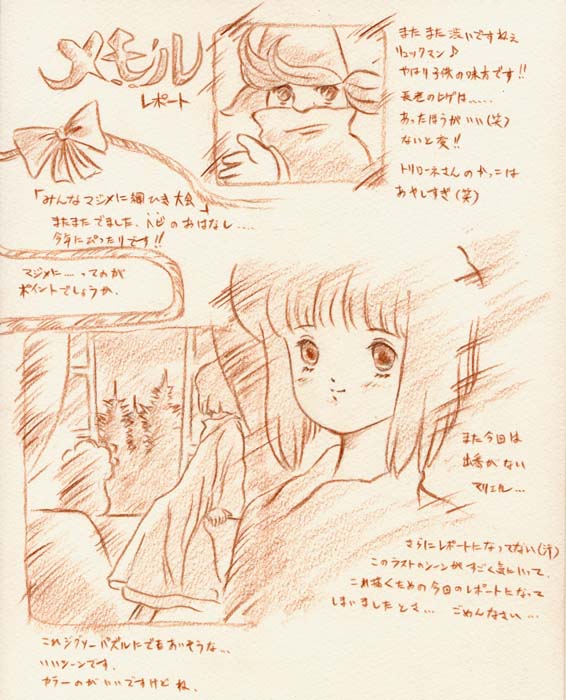 メモル
レポート
また また 渋いですねぇ
リュックマン♪
やはり 子供の味方です!!
長老のヒゲは……
あったほうがいい(笑)
ないと変!!
トリローネさんのかっこは
あやしすぎ(笑)
「みんなマジメに綱ひき大会」
またまたでました、ヘビのおはなし….
今年にぴったりです!!
マジメに…. ってのが
ポイントでしょうか.
また今回は
出番がない
マリエル…
さらにレポートになってない(汗)
このラストのシーンがすごく気にいって、
これ描くための今回のレポートになって
しまいましたとさ… ごめんなさい…
これジグソーパズルにでもあいそうな…
いいシーンです.
カラーのがいいですけどね.